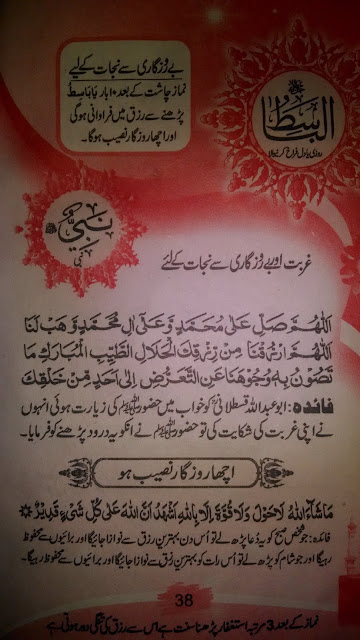 بے رُزگاری سے نجات کے لیے
نماز چاشت کے بعد ۱۰ بار یَابَاسِطُ
پڑھنے سے رزق میں فراوانی ہوگی
اور اچھا روزگار نصیب ہوگا۔
الباسط
نبیّ
نبی
غربت اور بے رُزگاری سے نجات کے لئے
اَللّٰهُمَّ صَلِّ عَلٰی مُحَمَّدٍ وَّعَلٰی اٰلِ مُحَمَّدٍ وَّهَبْ لَنَا
اَللّٰهُمَّ ارْزُقْنَا مِنْ رِّزْقِكَ الْحَلَالِ الطَّيِّبِ الْمُبَارَكِ مَا
تَصُوْنُ بِهٖ وُجُوْهَنَا عَنِ التَّعَرُّضِ اِلٰی اَحَدٍ مِّنْ خَلْقِكَ
فائدہ: ابو عبداللہ قسطلانیؒ کو خواب میں حضور ﷺ کی زیارت ہوئی انہوں
نے اپنی غربت کی شکایت کی تو حضور ﷺ نے انکو یہ درود پڑھنے کو فرمایا۔
اچھا روزگار نصیب ہو
مَا شَآءَ اللّٰهُ لَا حَوْلَ وَلَا قُوَّةَ اِلَّا بِاللّٰهِ اَشْهَدُ اَنَّ اللّٰهَ عَلٰی كُلِّ شَيْءٍ قَدِيْرٌ
فائدہ: جو شخص صبح کو یہ دُعا پڑھ لے تو اُس دن بہترین رزق سے نوازا جائیگا اور برائیوں سے محفوظ
رہیگا اور جو شام کو پڑھ لے تو اُس رات کو بہترین رزق سے نوازا جائیگا اور برائیوں سے محفوظ رہیگا۔
38
نماز کے بعد 3 مرتبہ استغفار پڑھنا سنت ہے اس سے رزق کی تنگی دور ہوتی ہے